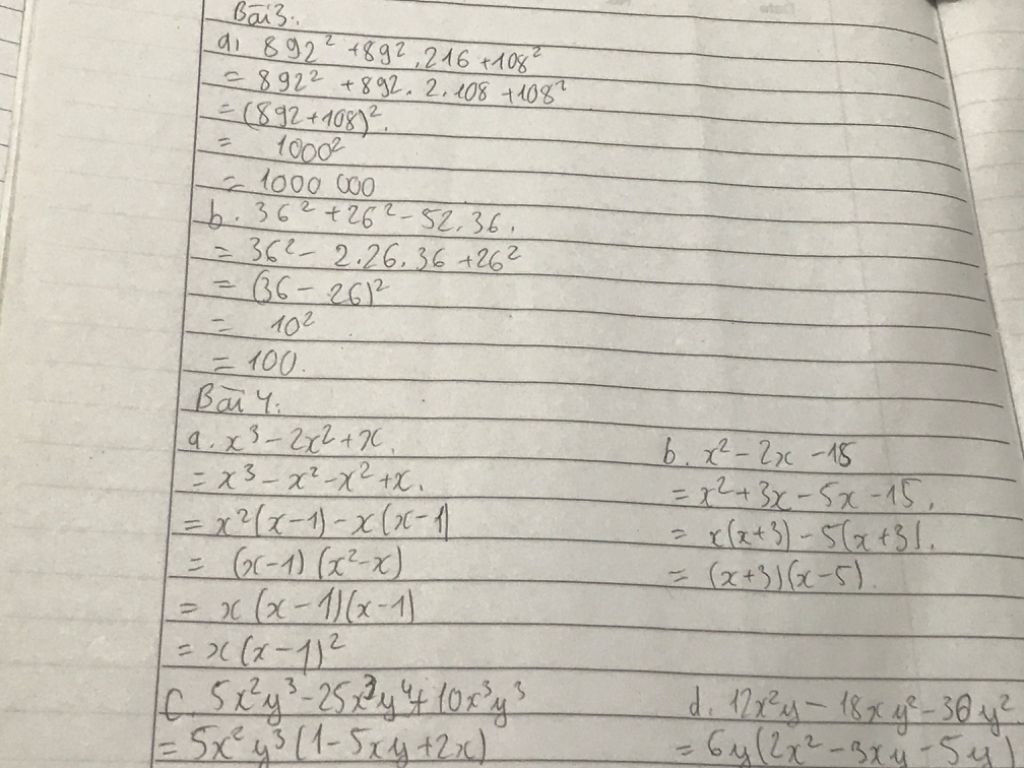 Bài 3:
a, 892² + 892 . 216 + 108²
= 892² + 892 . 2 . 108 + 108²
= (892 + 108)².
= 1000²
= 1000 000
b. 36² + 26² - 52 . 36 .
= 36² - 2 . 26 . 36 + 26²
= (36 - 26)²
= 10²
= 100.
Bài 4:
a. x³ - 2x² + x.
= x³ - x² - x² + x.
= x²(x - 1) - x(x - 1)
= (x - 1)(x² - x)
= x(x - 1)(x - 1)
= x(x - 1)²
b. x² - 2x - 15
= x² + 3x - 5x - 15.
= x(x + 3) - 5(x + 3).
= (x + 3)(x - 5).
c. 5x²y³ - 25x³y⁴ + 10x³y³
= 5x²y³(1 - 5xy + 2x)
d. 12x²y - 18xy² - 30y²
= 6y(2x² - 3xy - 5y)